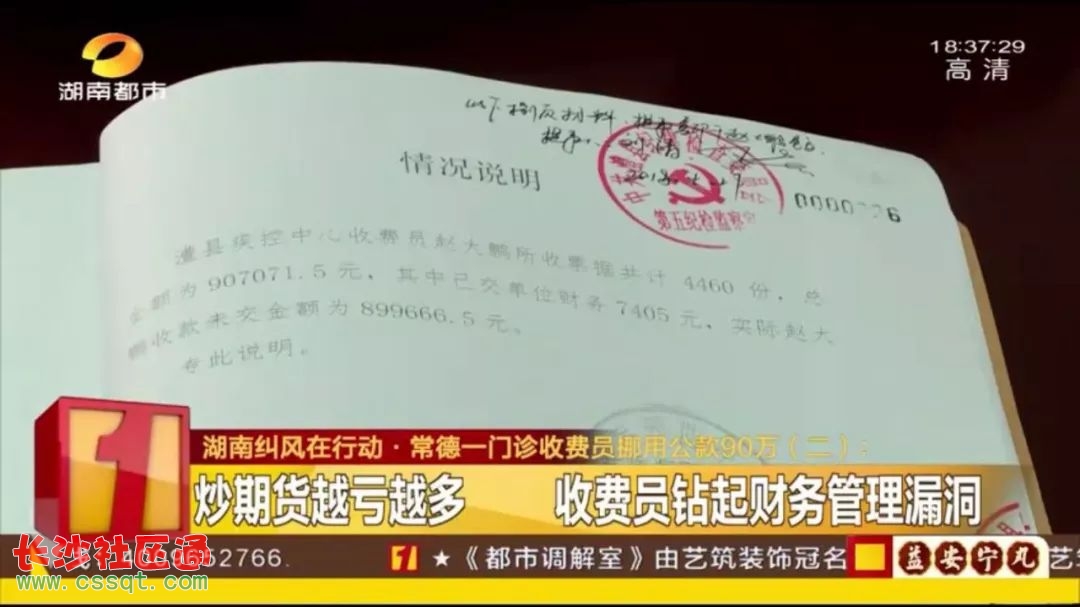 湖南都市
18:37:29
高清
情况说明
0000226
第五纪检监察
澧县疾控中心收费员赵大鹏所收票据共计 4460 份,总
金额为 907071.5 元,其中已交单位财务 7405 元,实际赵大
鹏收款未交金额为 899666.5 元。
专此说明。
湖南纠风在行动·常德一门诊收费员挪用公款90万(二):
炒期货越亏越多 收费员钻起财务管理漏洞
长沙社区通
www.cssqt.com
652766.
★《都市调解室》由艺筑装饰冠名
益安宁丸
艺筑